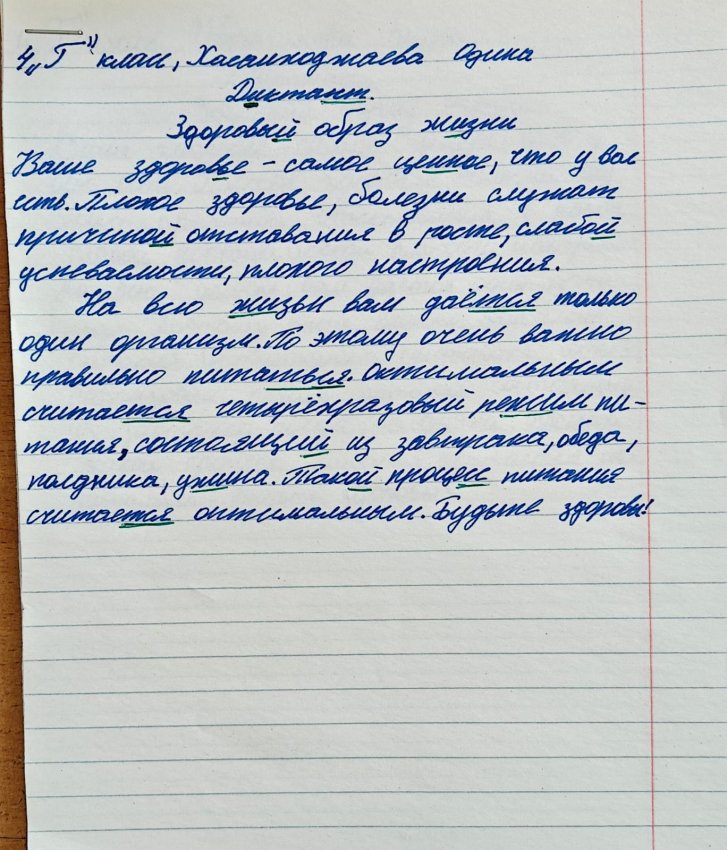 4 „Г" класс, Хасанходжаева Одина
Диктант.
Здоровый образ жизни
Ваше здоровье - самое ценное, что у вас
есть. Плохое здоровье, болезни служат
причиной отставания в росте, слабой
успеваемости, плохого настроения.
На всю жизьн вам даётся только
один организм. По этому очень важно
правильно питаться. Оптимальным
считается четырёхразовый режим пи-
тания, состоящий из завтрака, обеда,
полдника, ужина. Такой процесс питания
считается оптимальным. Будьте здоровы!